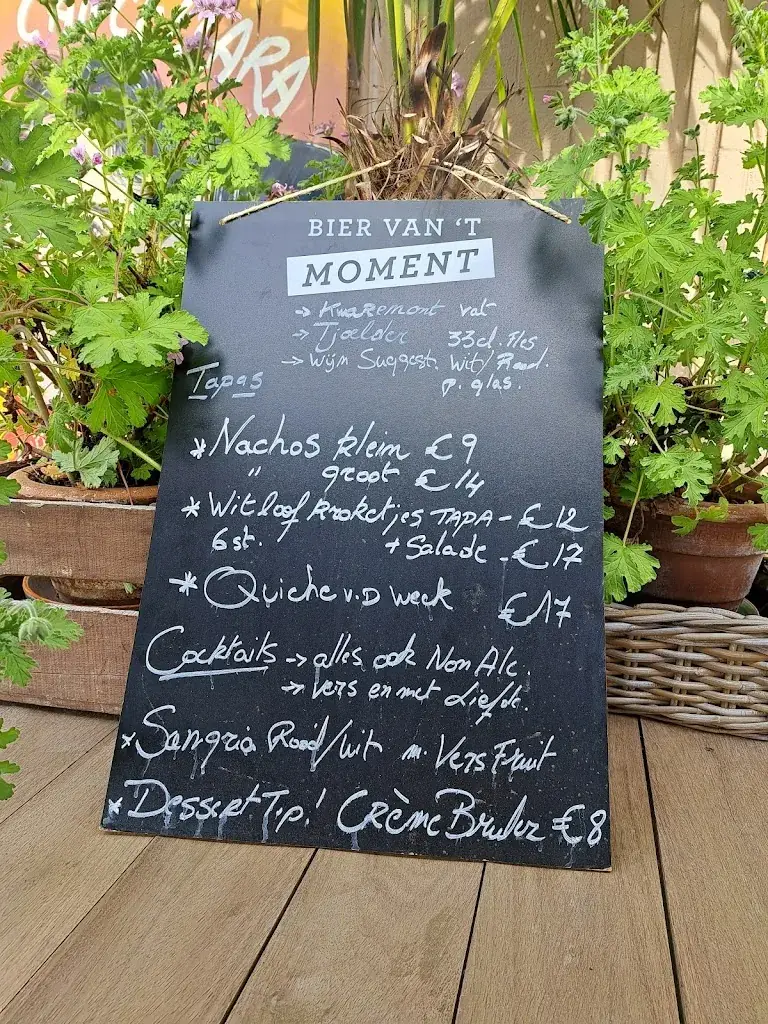 ARA
BIER VAN 'T
MOMENT
→ Kwaremont vat
→ Tjoelder 33cl. fles
→ Wijn Suggest. Wit/Rood.
p. glas.
Tapas
* Nachos klein €9
" groot €14
* Witloof kroketjes TAPA - €12
6 st. + Salade - €17
* Quiche v.D week €17
Cocktails → alles ook Non Alc.
→ Vers en met Liefde.
* Sangria Rood/wit m. Vers Fruit
* Dessert Tip! Crème Brulez €8